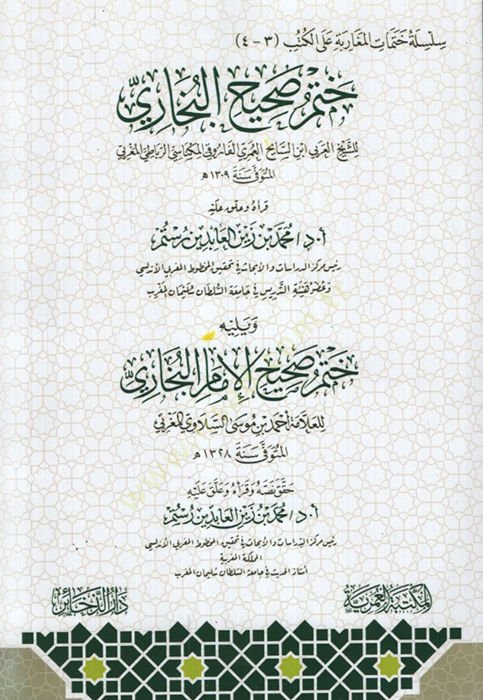 سِلْسِلَةُ خَتَمَاتِ المَغَارِبَةِ عَلَى الكُتُبِ (٣ - ٤)
خَتْمُ صَحِيحِ البُخَارِيِّ
لِلشَّيْخِ العَرَبِي ابن السَّايح العُمَرِي الفَارُوقِي المِكْنَاسِي الرِّبَاطِي المَغْرِبِي
المُتَوَفَّى سَنَةَ ١٣٠٩هـ
قَرَأَهُ وَعَلَّقَ عَلَيْهِ
أ.د/مُحَمَّد بْن زَيْن العَابِدِين رُسْتُم
رَئِيس مَرْكَز الدِّرَاسَات وَالأَبْحَاث فِي تَحْقِيق المَخْطُوط المَغْرِبِي الأَنْدَلُسِي
وَعُضْو هَيْئَةِ التَّدْرِيس فِي جَامِعَة السُّلْطَان سُلَيْمَان المَغْرِب
وَيَلِيْهِ
خَتْمُ صَحِيحِ الإِمَامِ البُخَارِيِّ
لِلعَلَّامَة أَحْمَد بْن مُوسَى السَّلَاوِي المَغْرِبِي
المُتَوَفَّى سَنَةَ ١٣٢٨هـ
حَقَّقَ نَصَّهُ وَقَرَأَهُ وَعَلَّقَ عَلَيْهِ
أ.د/مُحَمَّد بْن زَيْن العَابِدِين رُسْتُم
رَئِيس مَرْكَز الدِّرَاسَات وَالأَبْحَاث فِي تَحْقِيق المَخْطُوط المَغْرِبِي الأَنْدَلُسِي
المملكة المغربية
أُسْتَاذ الحَدِيث فِي جَامِعَة السُّلْطَان سُلَيْمَان المَغْرِب
المَكْتَبَة العُمَرِيَّة
دَارُ الذَّخَائِرِ